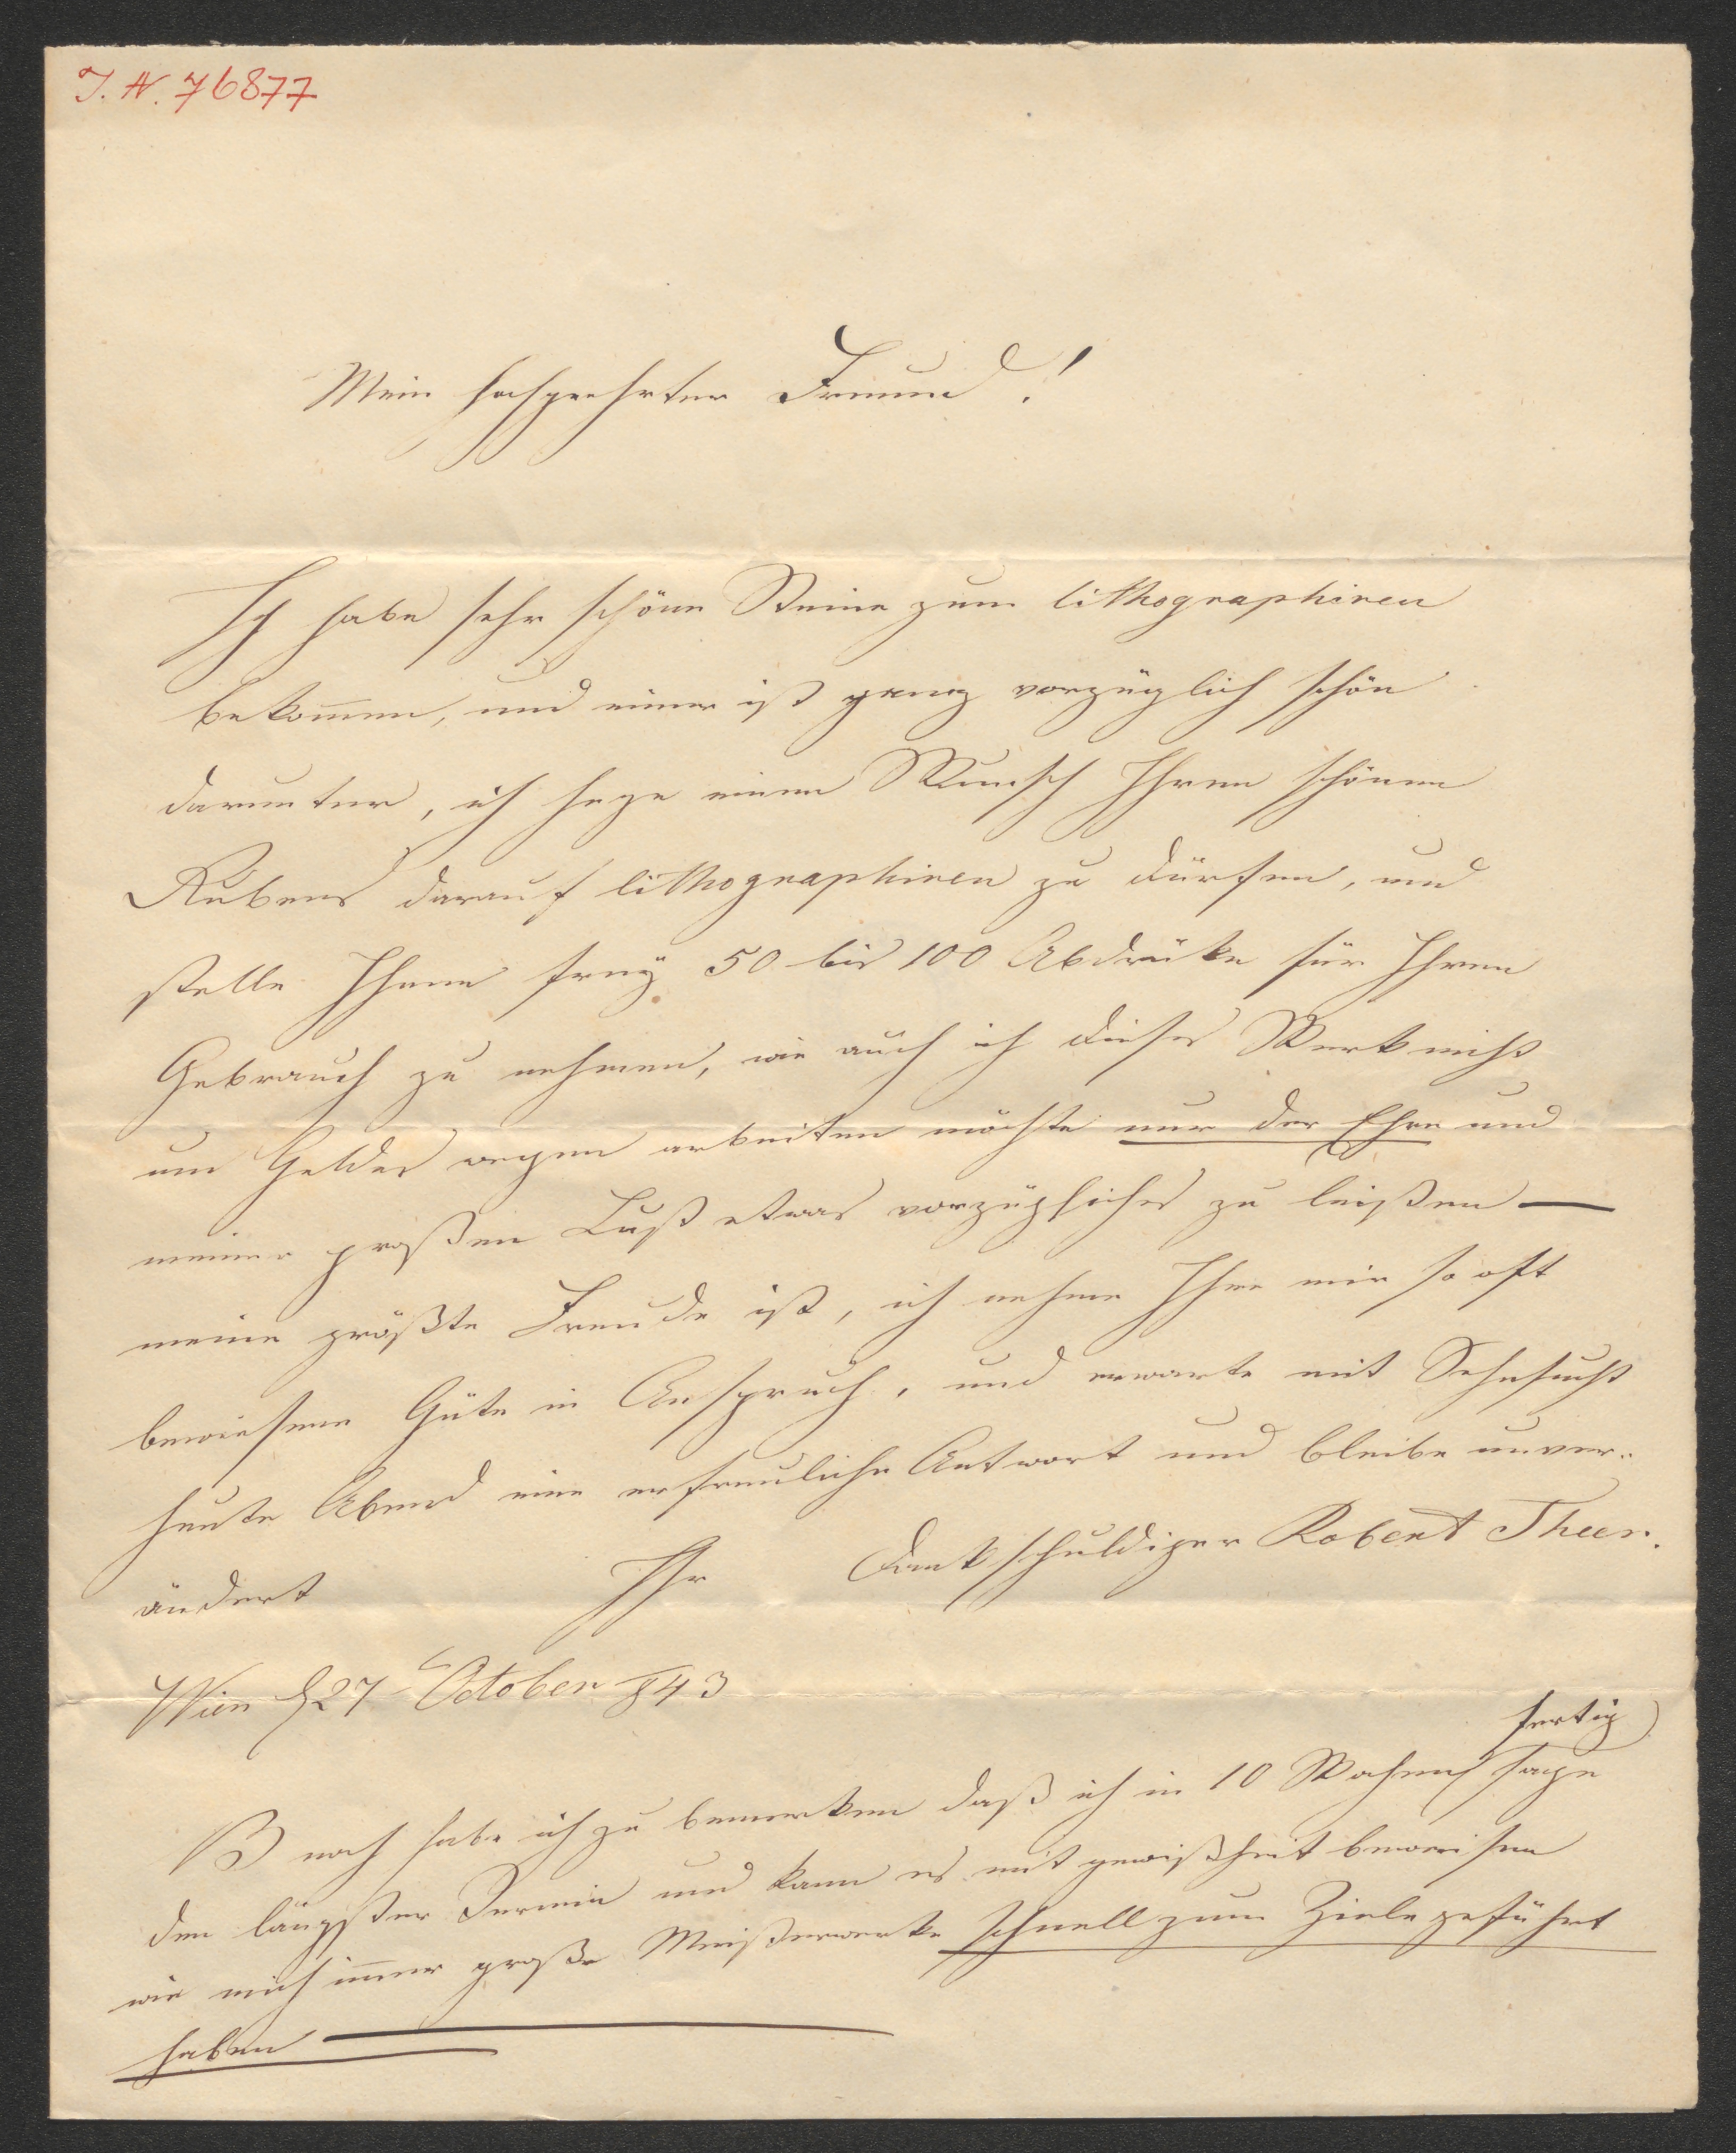 I. N. 76877
Mein hochgeehrter Freund!
Ich habe sehr schöne Steine zum lithographiren
bekom̅en, und einer ist ganz vorzüglich schön
darunter, ich hege einen Wunsch Ihren schönen
Rubens darauf lithographiren zu dürfen, und
stelle Ihnen freÿ 50 bis 100 Abdrücke für Ihren
Gebrauch zu nehmen, wie auch ich dieses Werk nicht
um Geldes wegen arbeiten möchte nur der Ehre und
meiner großen Lust etwas vorzügliches zu leisten —
meine größte Freude ist, ich nehme Ihre mir so oft
bewiesene Güte in Anspruch, und erwarte mit Sehnsucht
heute Abend eine erfreuliche Antwort und bleibe unver-
ändert Ihr Dankschuldiger Robert Theer.
Wien 27 October 843
fertig
noch habe ich zu bemerken daß ich in 10 Wochen sage
den längsten Termin und kann es mit gewißheit beweisen
wie mich im̅er große Meisterwerke schnell zum Ziele geführt
haben —